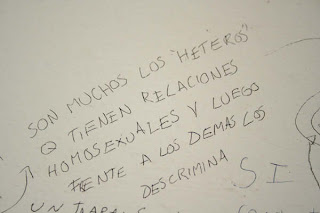 SON MUCHOS LOS "HETEROS"
Q TIENEN RELACIONES
HOMOSEXUALES Y LUEGO
FRENTE A LOS DEMAS LOS
DESCRIMINA SI
UN